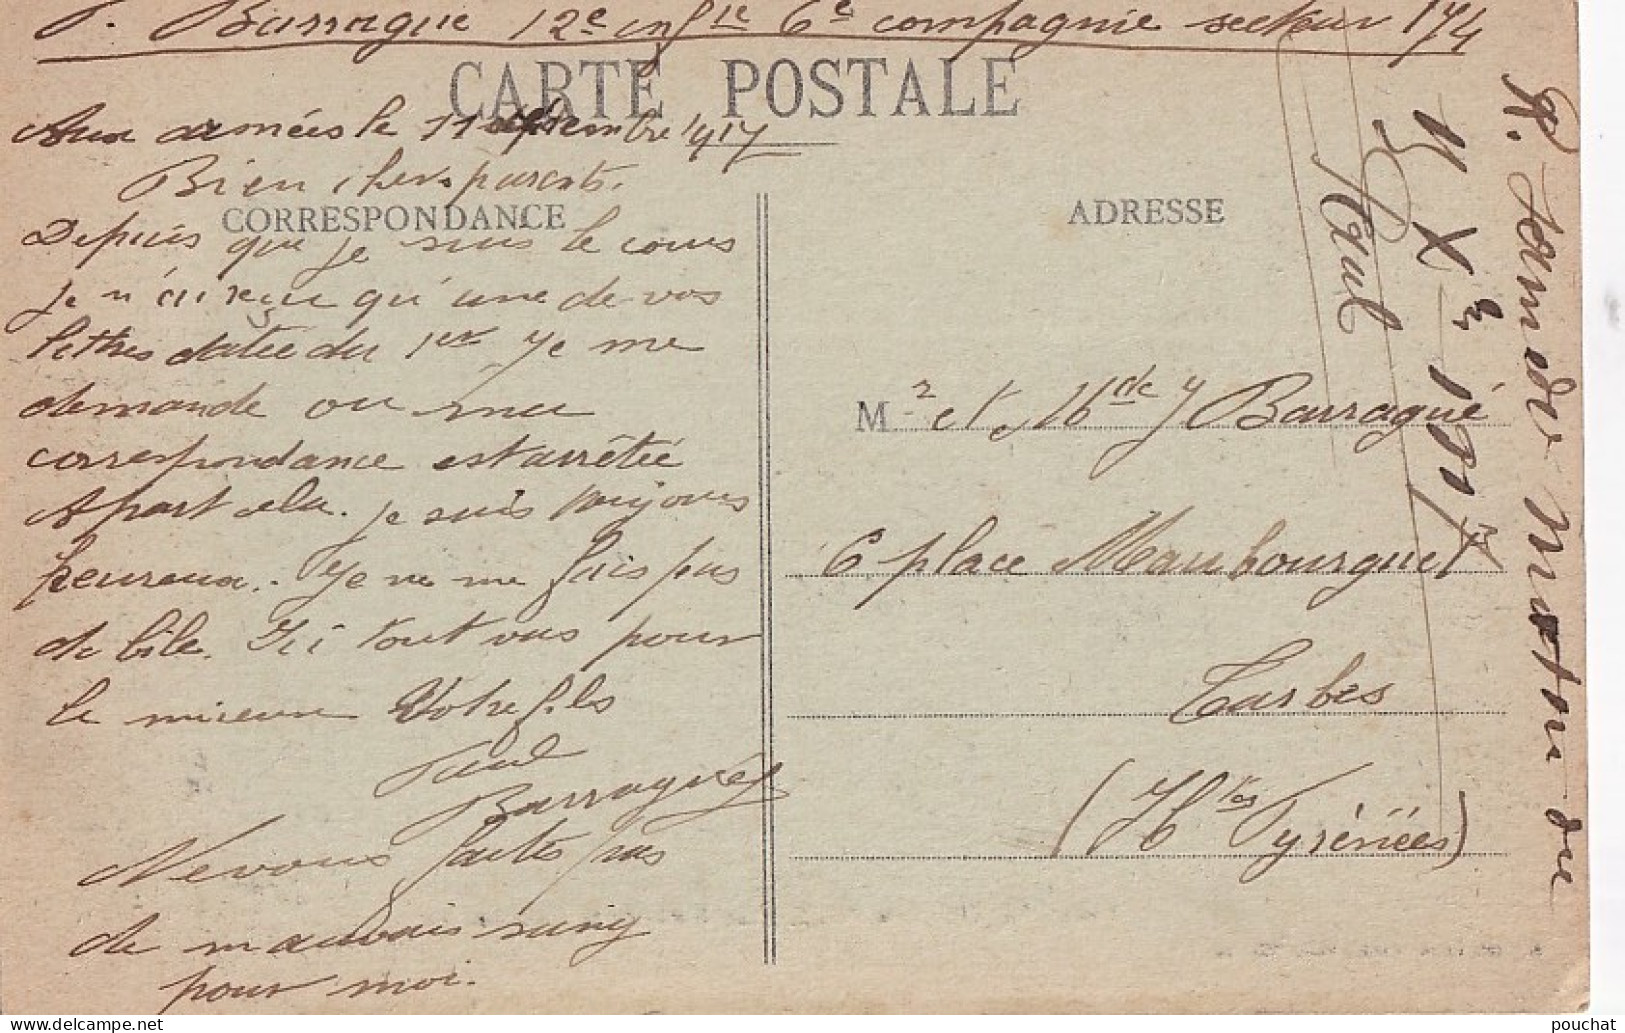 P. Barrague 12e infie 6e compagnie secteur 174
CARTE POSTALE
Aux armées le 11 septembre 1917
Bien chers parents.
CORRESPONDANCE
Depuis que je suis le cours
je n'ai reçu qu'une de vos
lettres datée du 1er je me
demande ou ma
correspondance est arrêtée
Apart cela. je suis toujours
heureux. Je ne me fais pas
de bile. Ici tout vas pour
le mieux Votre fils
Paul
Barrague
Ne vous faites pas
de mauvais sang
pour moi.
ADRESSE
M r et Mde Barragué
6 place Maubourguet
Tarbes
(Htes Pyrénées)
Paul
R.
du
pouchat